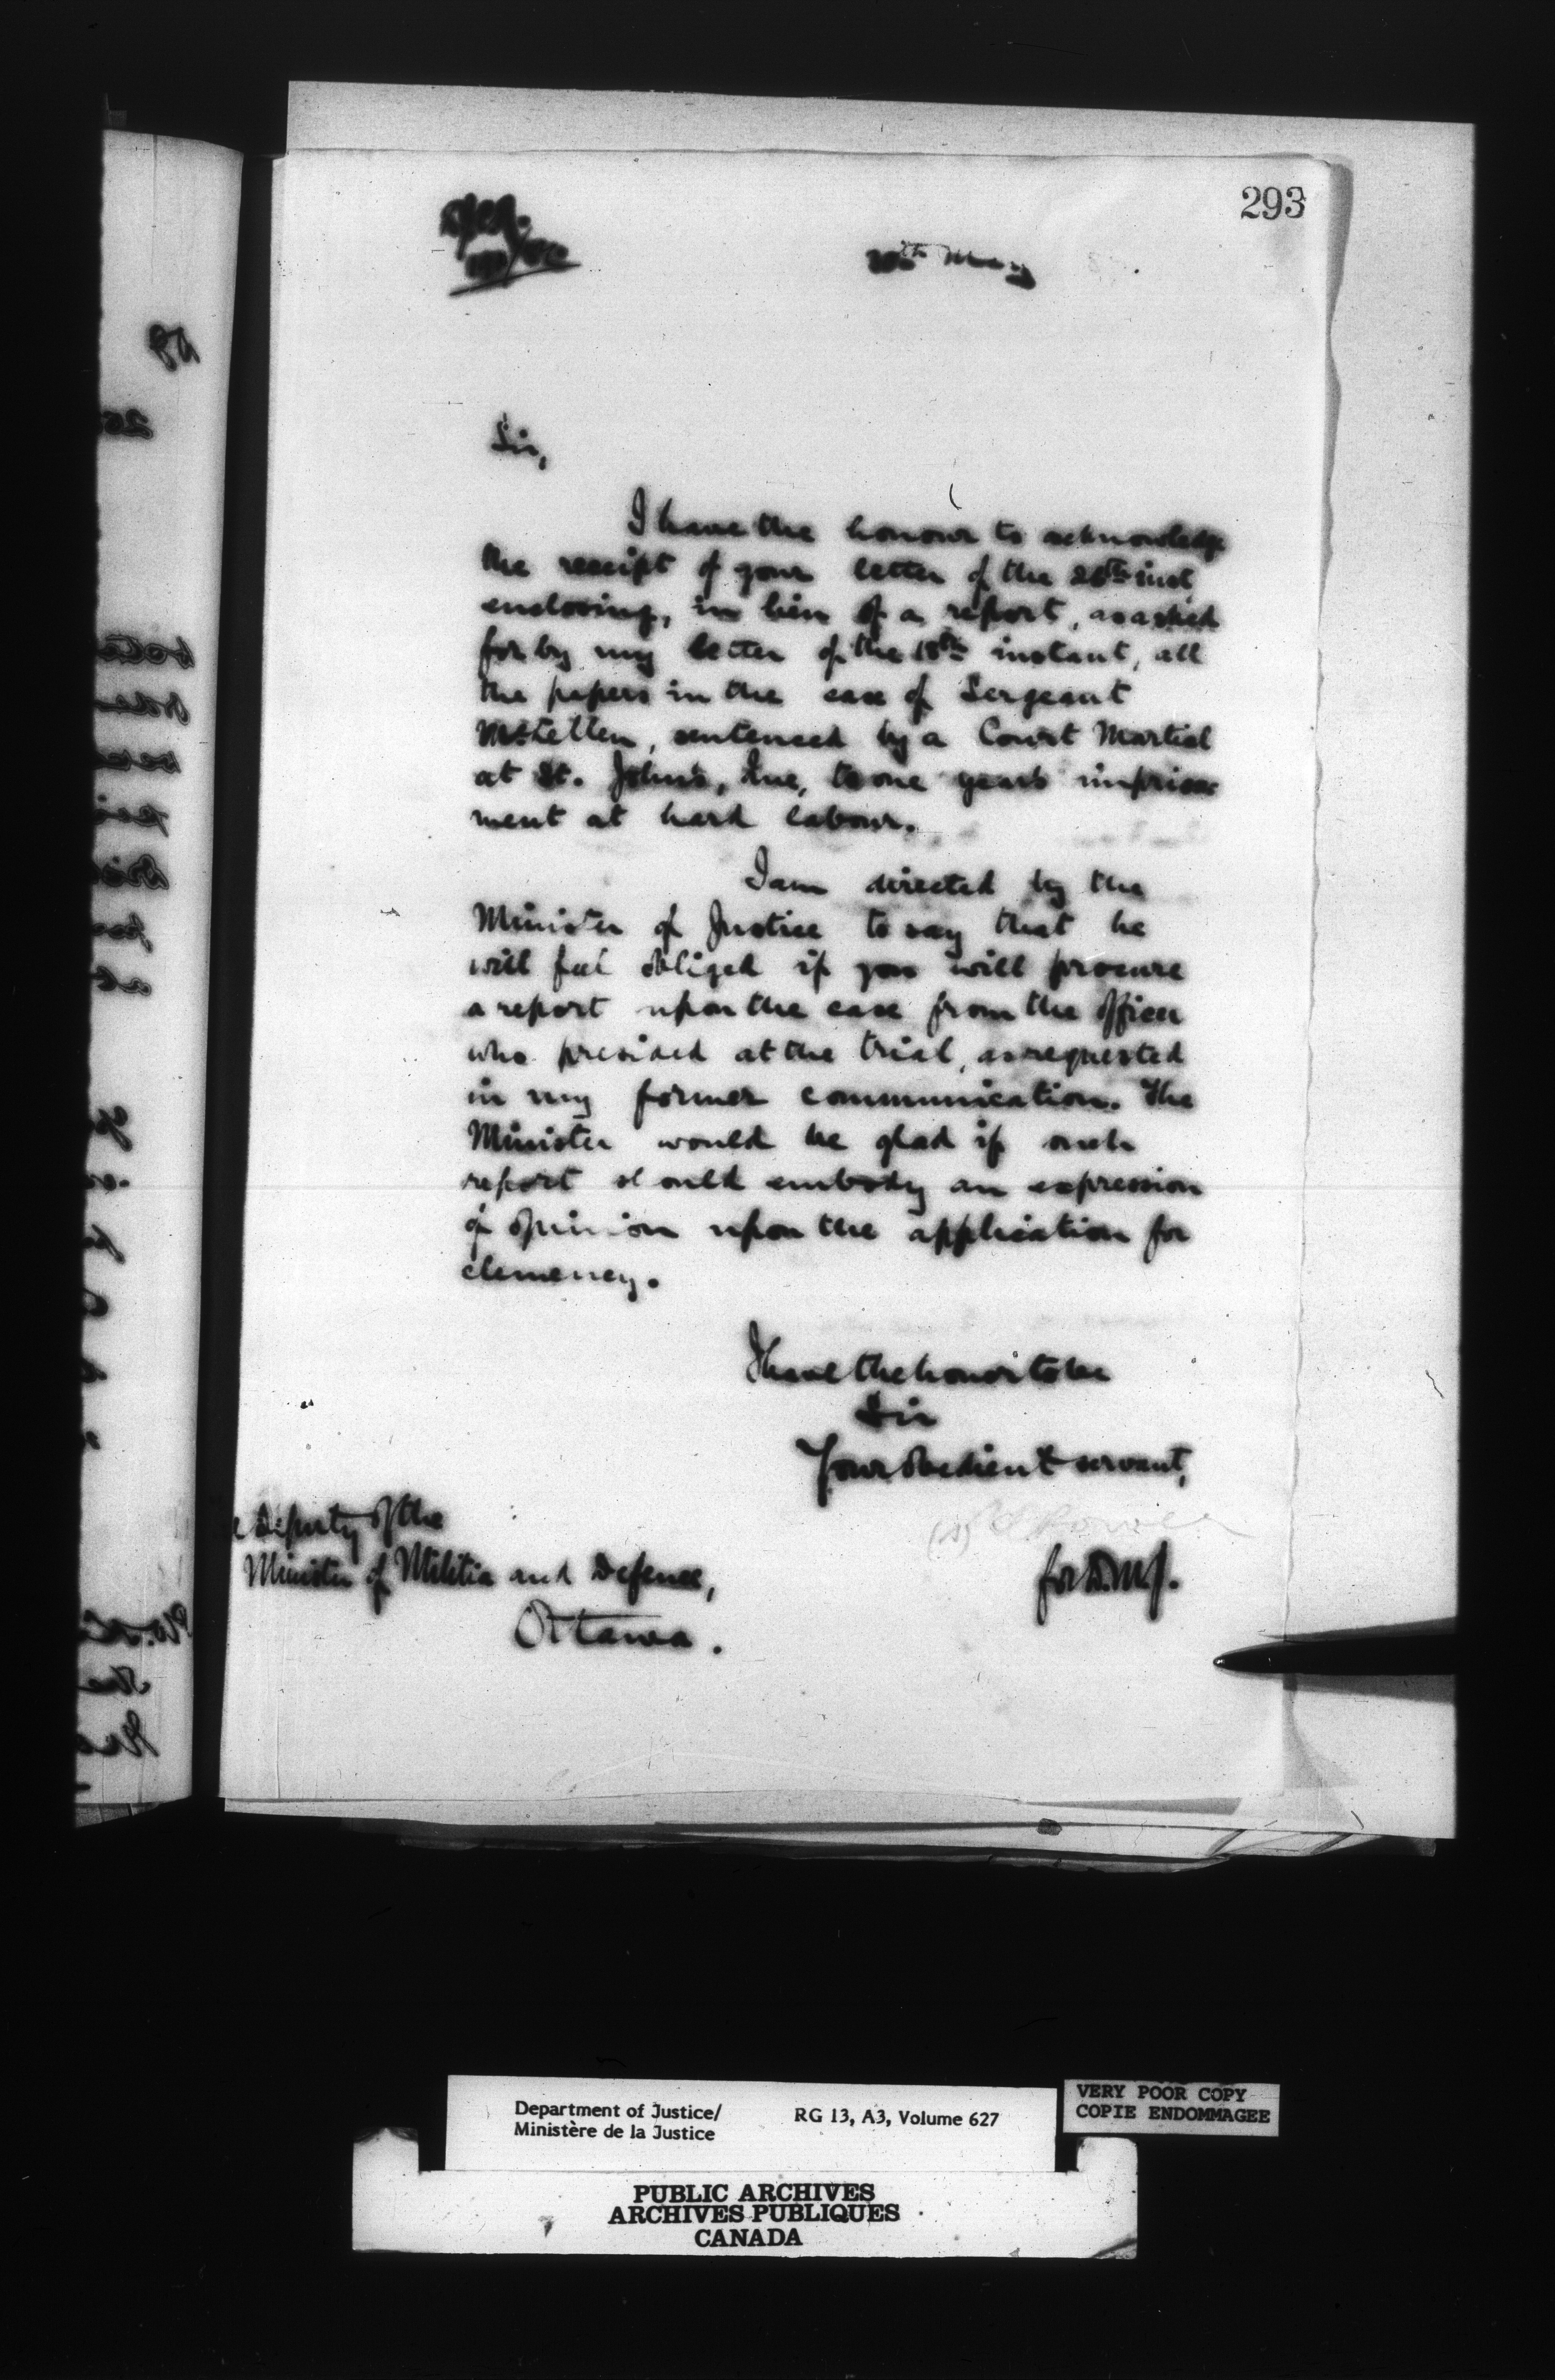 293
th May
Sir,
I have the honour to acknowledge
the receipt of your letter of the 26th inst,
enclosing, in lieu of a report, as asked
for by my letter of the 18th instant, all
the papers in the case of Sergeant
McLellen, sentenced by a Court Martial
at St. John's, Que, to one years imprison
ment at hard labour.
I am directed by the
Minister of Justice to say that he
will feel obliged if you will procure
a report upon the case from the officer
who presided at the trial, as requested
in my former communication. The
Minister would be glad if such
report should embody an expression
of opinion upon the application for
clemency.
I have the honor to be
Sir
Your obedient servant,
(s)
for D.M.J.
Deputy of the
Minister of Militia and Defence,
Ottawa.
Department of Justice/
Ministère de la Justice
RG 13, A3, Volume 627
VERY POOR COPY
COPIE ENDOMMAGEE
PUBLIC ARCHIVES
ARCHIVES PUBLIQUES
CANADA